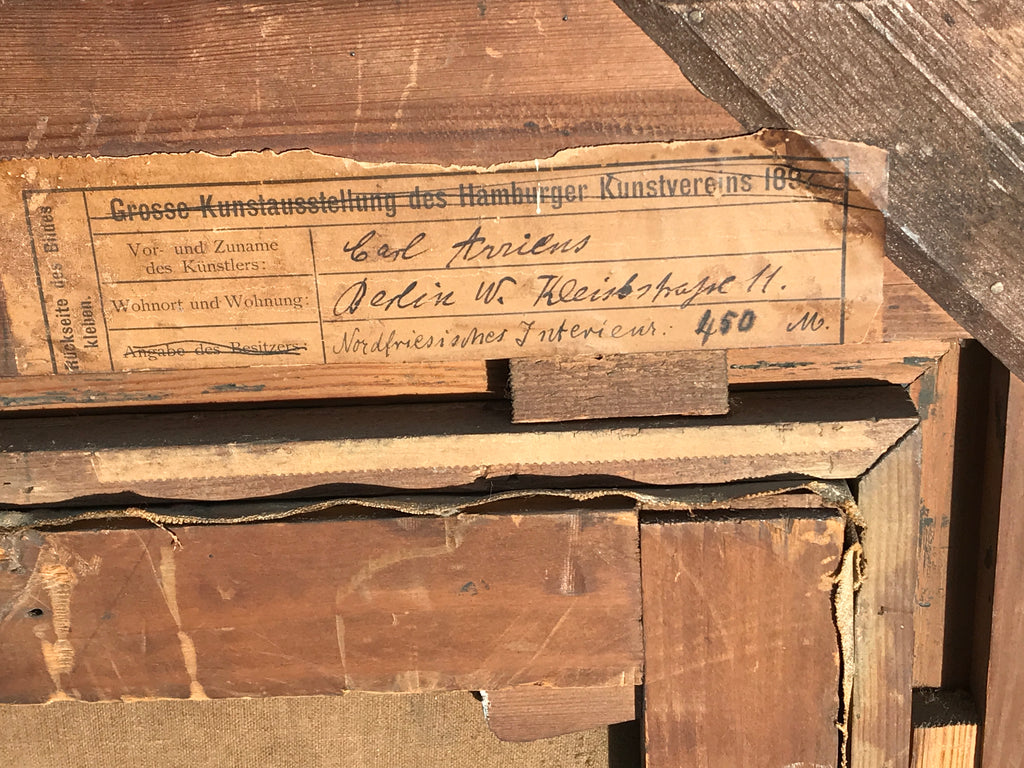 Grosse Kunstausstellung des Hamburger Kunstvereins 189
Rückseite des Bildes
kleben.
Vor- und Zuname
des Künstlers:
Carl Arriens
Wohnort und Wohnung:
Berlin W. Kleiststraße 11.
Angabe des Besitzers:
Nordfriesisches Interieur. 450 M.